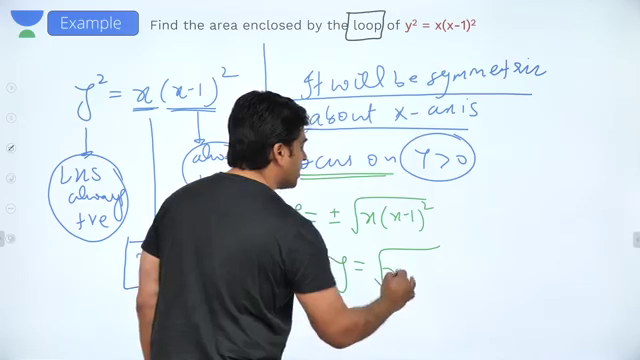 Example
Find the area enclosed by the loop of y² = x(x-1)²
y² = x(x-1)²
LHS
always
+ve
It will be symmetric
about x-axis
on y>0
= ± √x(x-1)²
y = √